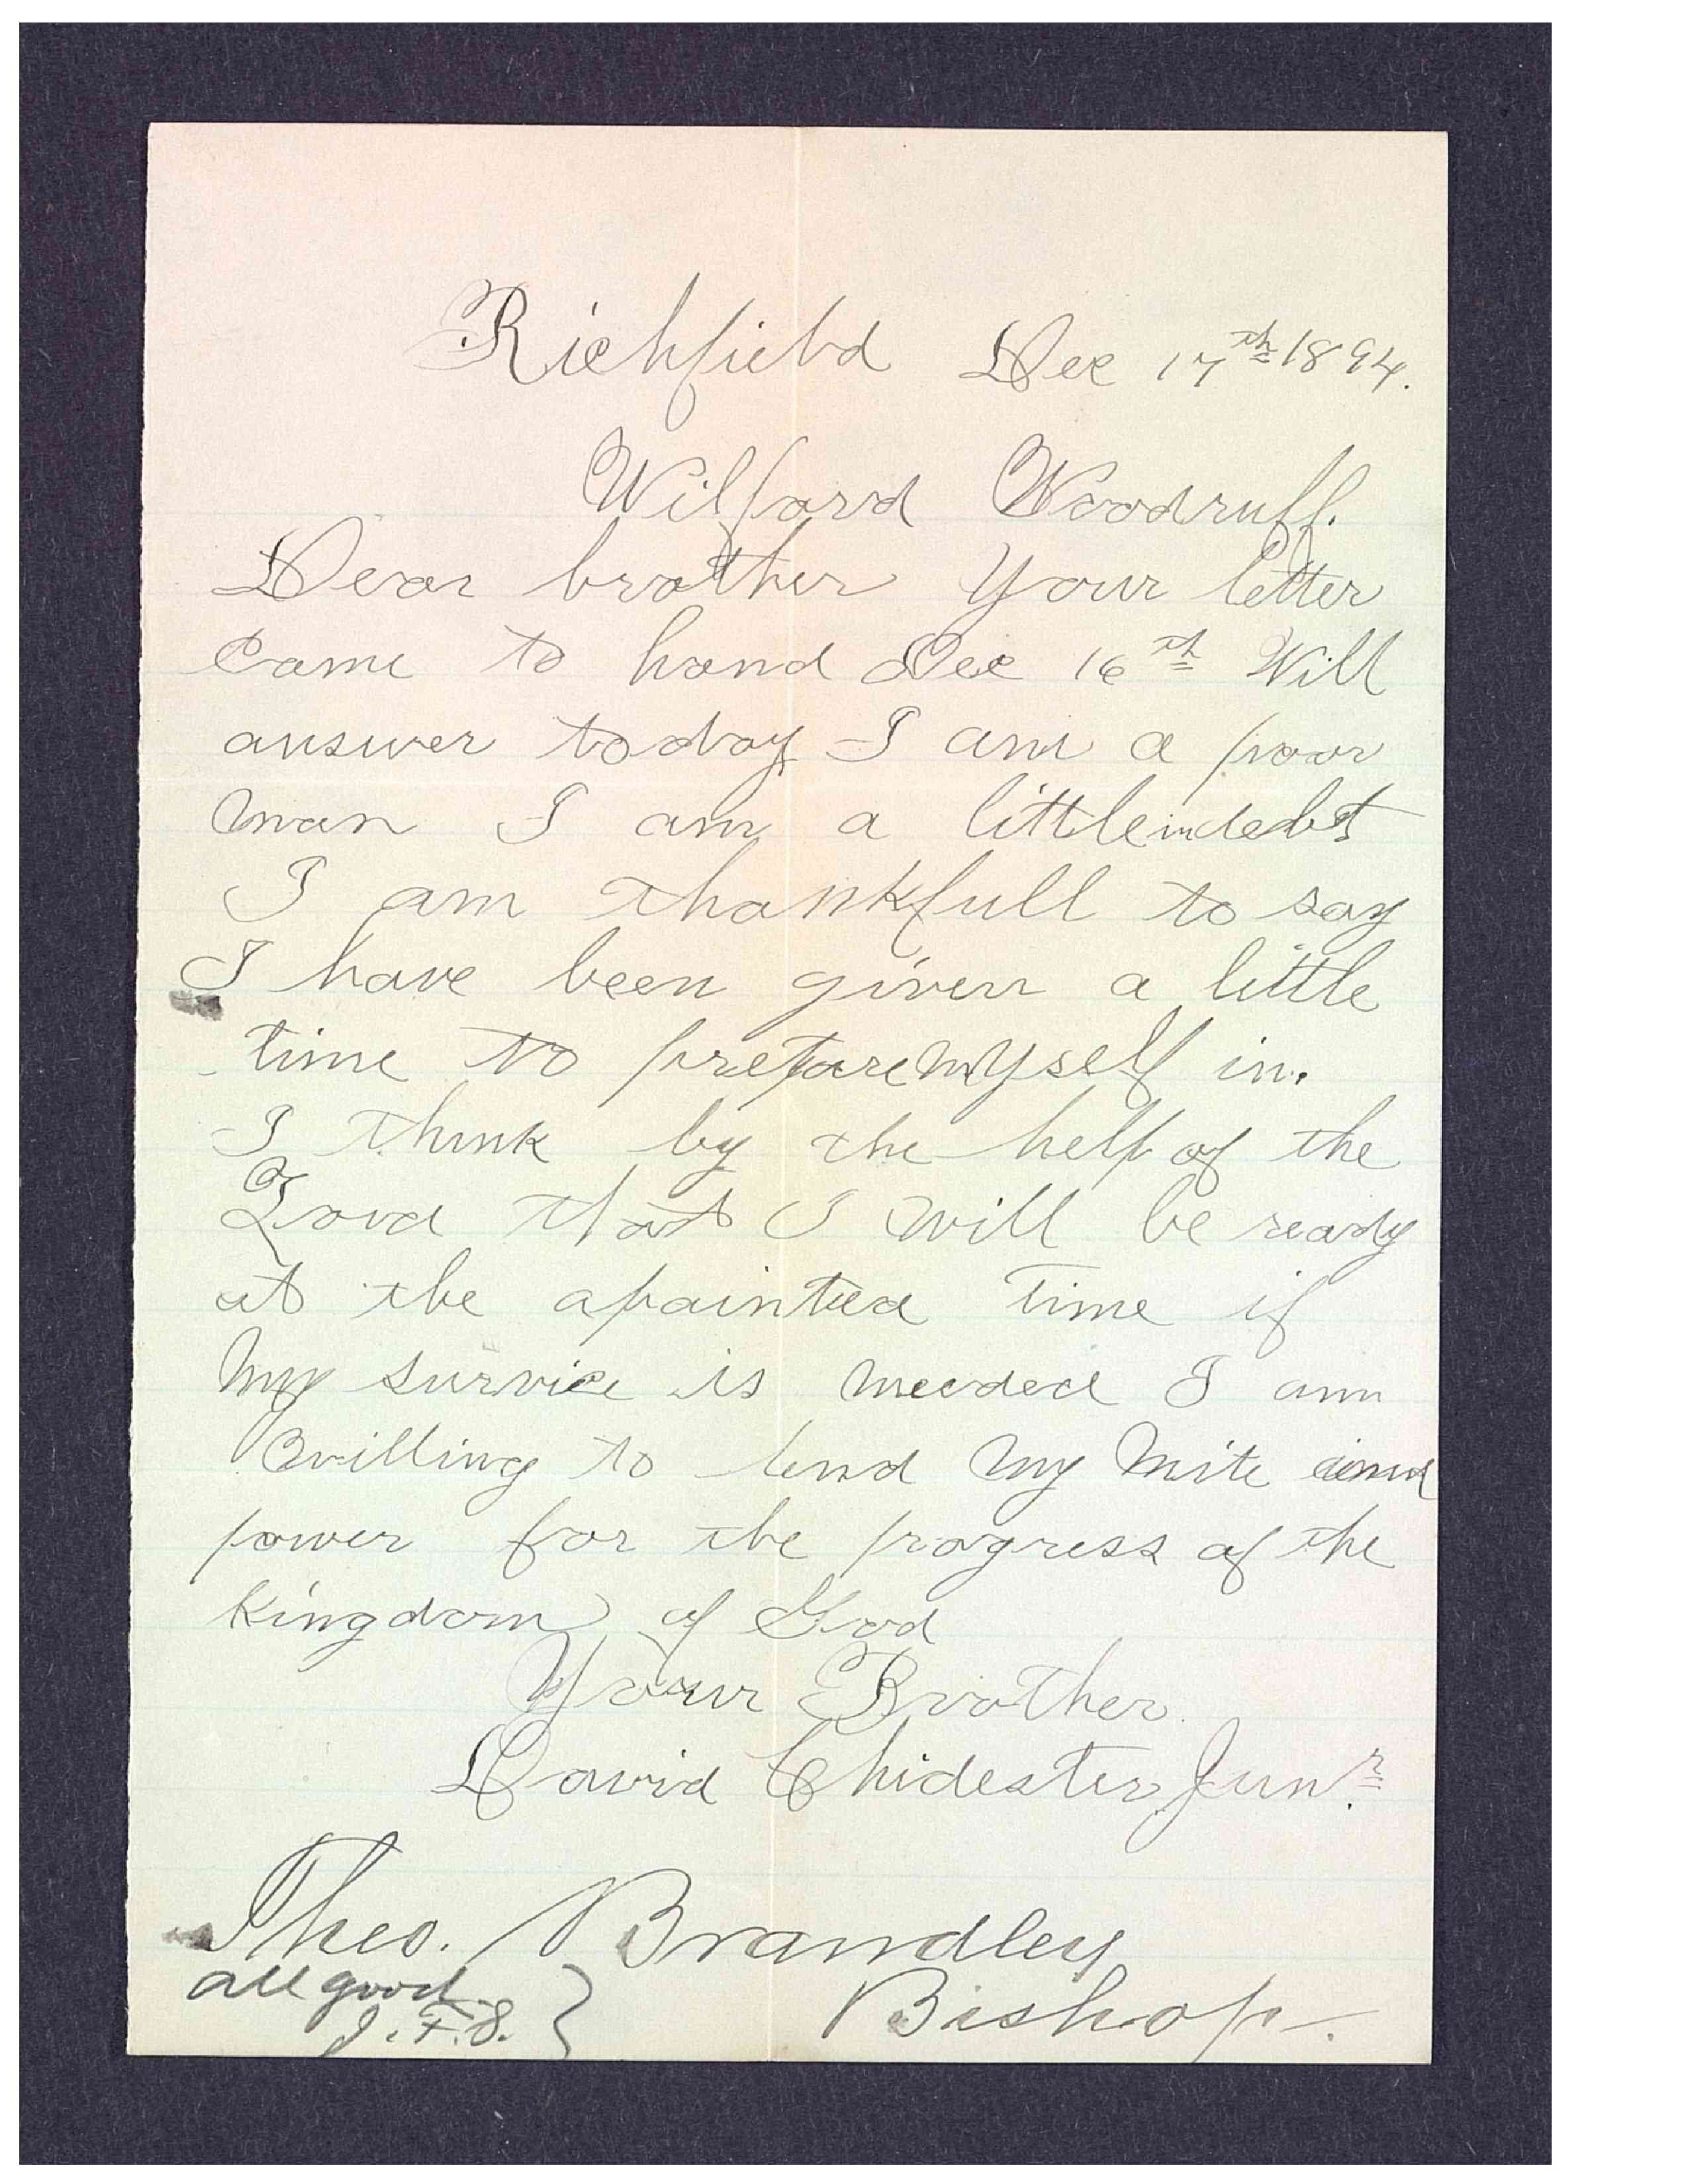 Richfield Dec 17th 1894.
Wilford Woodruff.
Dear brother Your letter
Came to hand Dec 16th Will
answer today I am a poor
man I am a little in debt
I am thankfull to say
I have been given a little
time to prepare myself in.
I think by the help of the
Lord that I will be ready
at the apainted time if
my survice is needed I am
willing to lend my mite and
power for the progress of the
Kingdom of God
Your Brother.
David Chidester Junr.
Theo. Brandley
Bishop.
all good
J. F. S. }